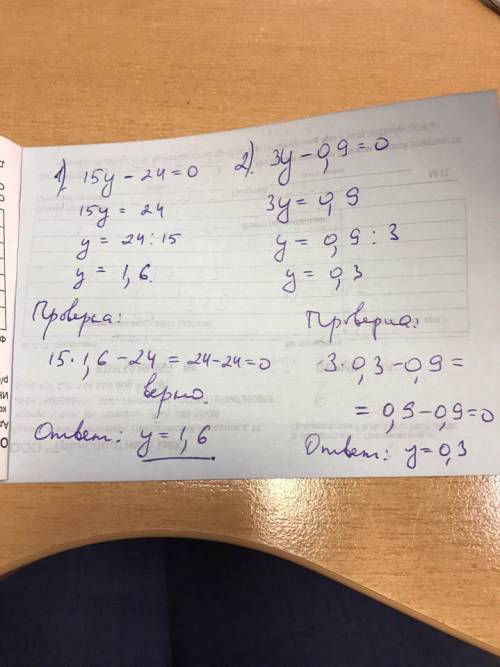 1) 15y - 24 = 0
15y = 24
y = 24 : 15
y = 1,6.
Проверка:
15 · 1,6 - 24 = 24 - 24 = 0
верно.
Ответ: y = 1,6.
2). 3y - 0,9 = 0
3y = 0,9
y = 0,9 : 3
y = 0,3
Проверка:
3 · 0,3 - 0,9 =
= 0,9 - 0,9 = 0
Ответ: y = 0,3